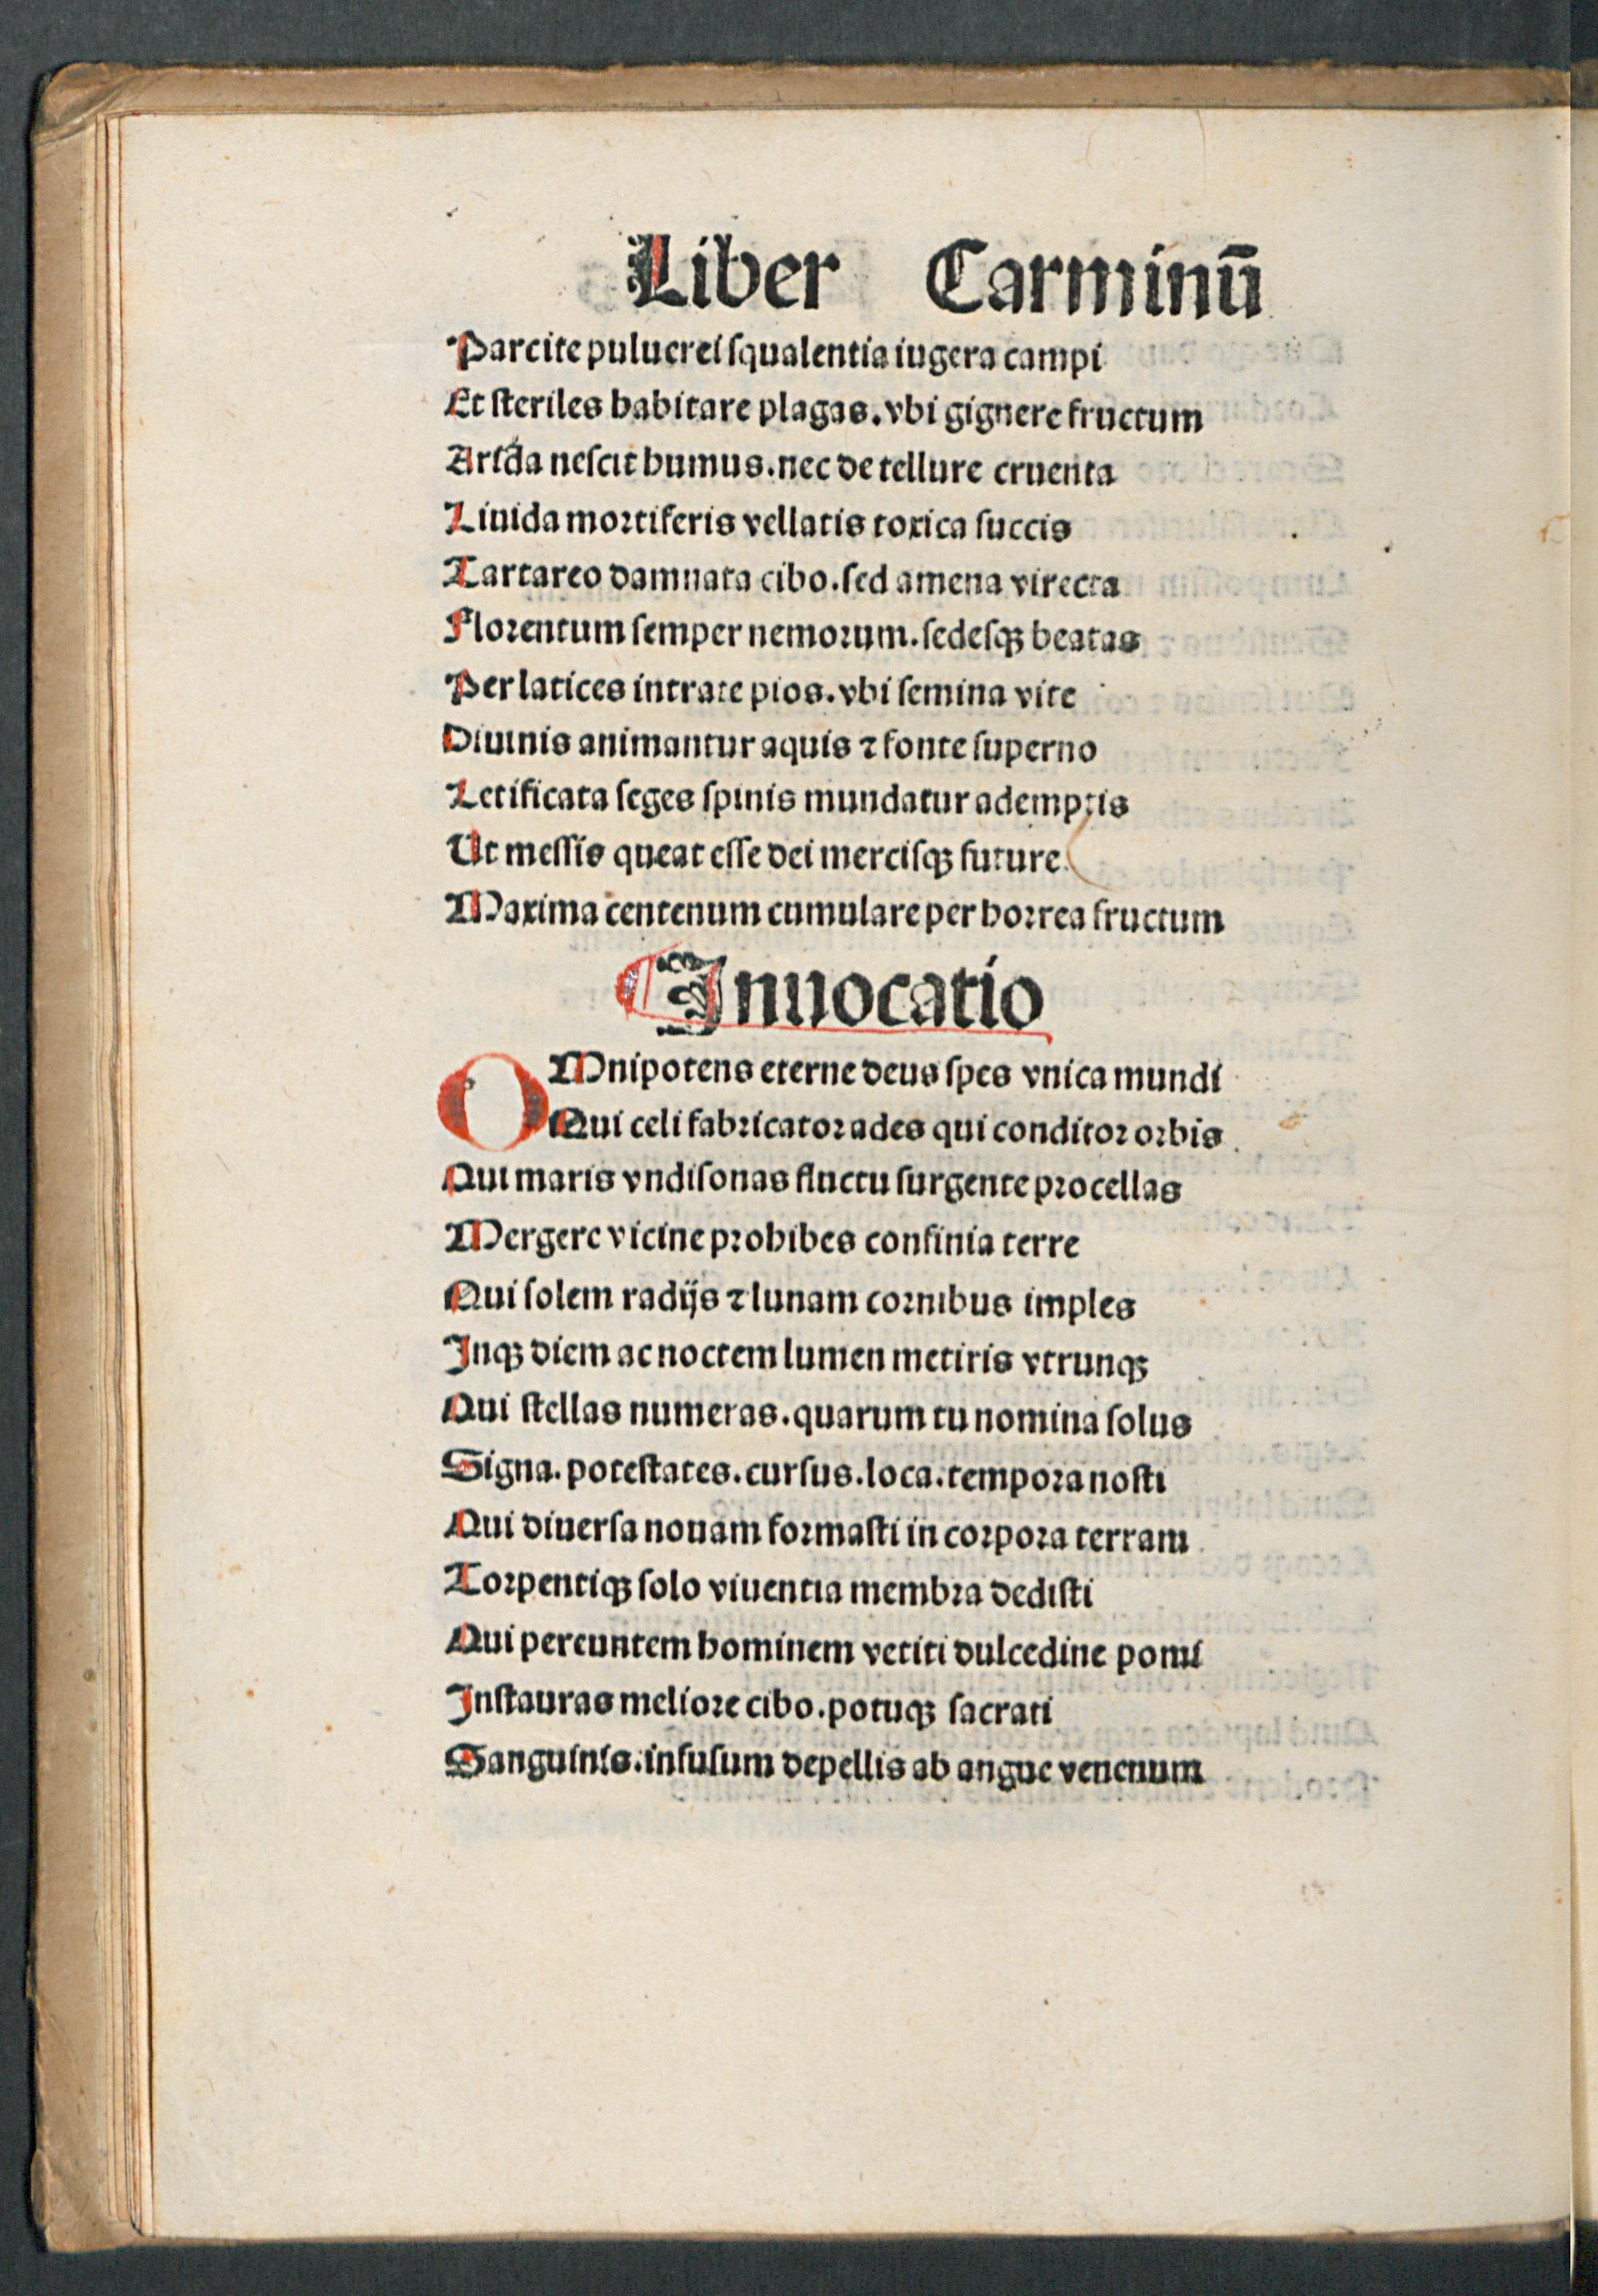 Liber Carminū
Parcite puluerei ſqualentia iugera campi
Et ſteriles habitare plagas. vbi gignere fructum
Arida neſcit humus. nec de tellure cruenta
Liuida mortiferis vellatis toxica ſuccis
Tartareo damnata cibo. ſed amena virecta
Florentum ſemper nemorum. ſedeſqꝫ beatas
Per latices intrate pios. vbi ſemina vite
Diuinis animantur aquis ⁊ fonte ſuperno
Letificata ſeges ſpinis mundatur ademptis
Ut meſſis queat eſſe dei merciſqꝫ future
Maxima centenum cumulare per horrea fructum
Inuocatio
OMnipotens eterne deus ſpes vnica mundi
Qui celi fabricator ades qui conditor orbis
Qui maris vndiſonas fluctu ſurgente procellas
Mergere vicine prohibes confinia terre
Qui ſolem radijs ⁊ lunam cornibus imples
Inqꝫ diem ac noctem lumen metiris vtrunqꝫ
Qui ſtellas numeras. quarum tu nomina ſolus
Signa. poteſtates. curſus. loca. tempora noſti
Qui diuerſa nouam formaſti in corpora terram
Torpentiqꝫ ſolo viuentia membra dediſti
Qui pereuntem hominem vetiti dulcedine pomi
Inſtauras meliore cibo. potuqꝫ ſacrati
Sanguinis. infuſum depellis ab angue venenum